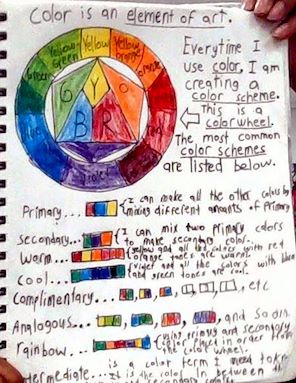 Color is an element of art.
Everytime I
use color, I am
creating a
color scheme.
This is a
color wheel.
The most common
color schemes
are listed below.
Yellow
Yellow-
Green
Yellow
orange
Green
orange
Blue
red
violet
G
Y
O
B
R
Primary... I can make all the other colors by
mixing different amounts of Primary
Secondary... I can mix two primary colors
to make secondary color.
Warm... yellow and all the colors with red
or orange tones are warm.
Cool... and all the colors with blue
and green tones are cool.
Complimentary... , etc
Analogous... and so on.
rainbow... using primary and secondary
color placed in order from
the color wheel.
termediate... is a color term I need to know
It is the color in between